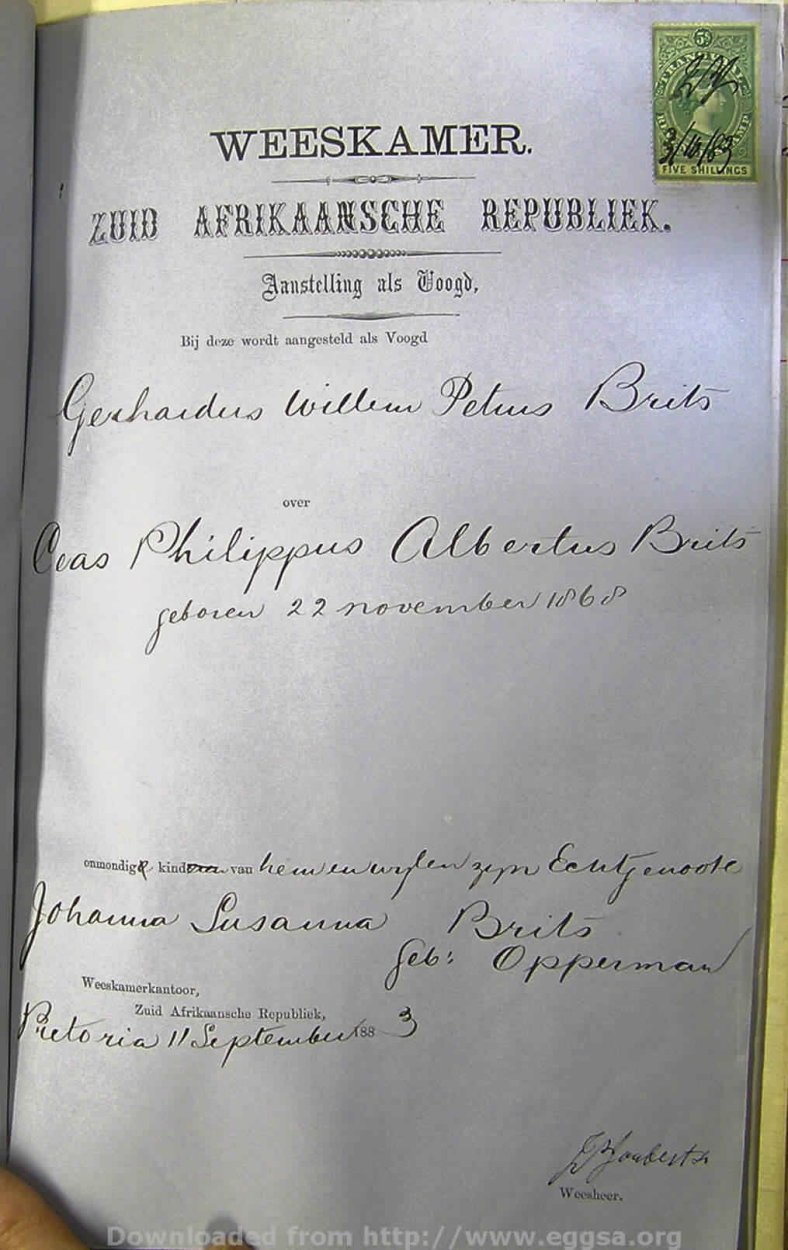 5s
TRANSVAAL
3/10/83
FIVE SHILLINGS
WEESKAMER.
ZUID AFRIKAANSCHE REPUBLIEK.
Aanstelling als Voogd,
Bij deze wordt aangesteld als Voogd
Gerhardus Willem Petrus Brits
over
Philippus Albertus Brits
geboren 22 november 1868
onmondige kind van hem en wylen zyn Echtgenoote
Johanna Susanna Brits
geb: Opperman
Weeskamerkantoor,
Zuid Afrikaansche Republiek,
Pretoria 11 September 1883
Joubert
Weesheer.
Downloaded from http://www.eggsa.org